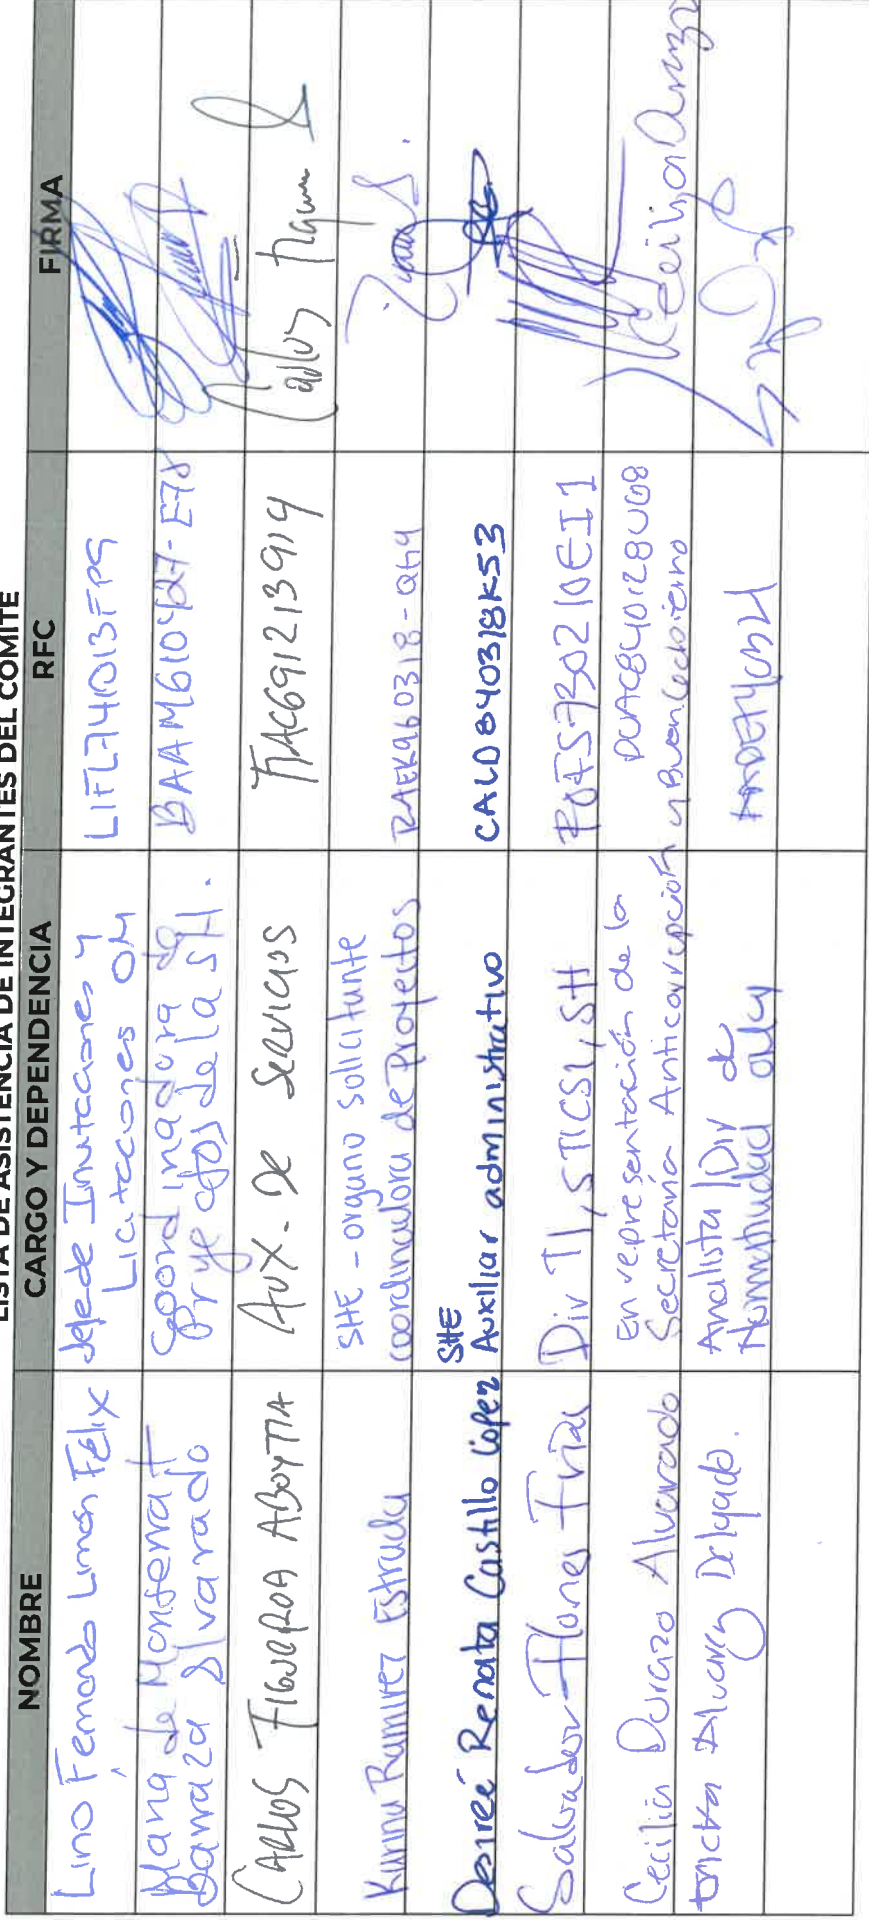 LISTA DE ASISTENCIA DE INTEGRANTES DEL COMITÉ
NOMBRE CARGO Y DEPENDENCIA RFC FIRMA
Lino Fernando Limón Félix Jefe de Invitaciones y Licitaciones OM LIFL741013FP9
Maria de Monserrat Barraza Alvarado Coordinadora de Proyectos de la SH. BAAM610427-E78
CARLOS FIGUEROA ABOYTIA AUX. De SERVICIOS FIAC691213914 Carlos Figueroa
Karina Ramirez Estrada SHE - organo solicitante coordinadora de Proyectos RAEK960318-QH9
Desireé Renata Castillo López SHE Auxiliar administrativo CALD840318K53
Salvador Flores Frias Div TI, STICSI, SH FOFS730210EI1
Cecilia Durazo Alvarado En representación de la Secretaría Anticorrupción y Buen Gobierno DUAC840128UG8 Cecilia
Alvarez Delgado. Analista Div de Normatividad